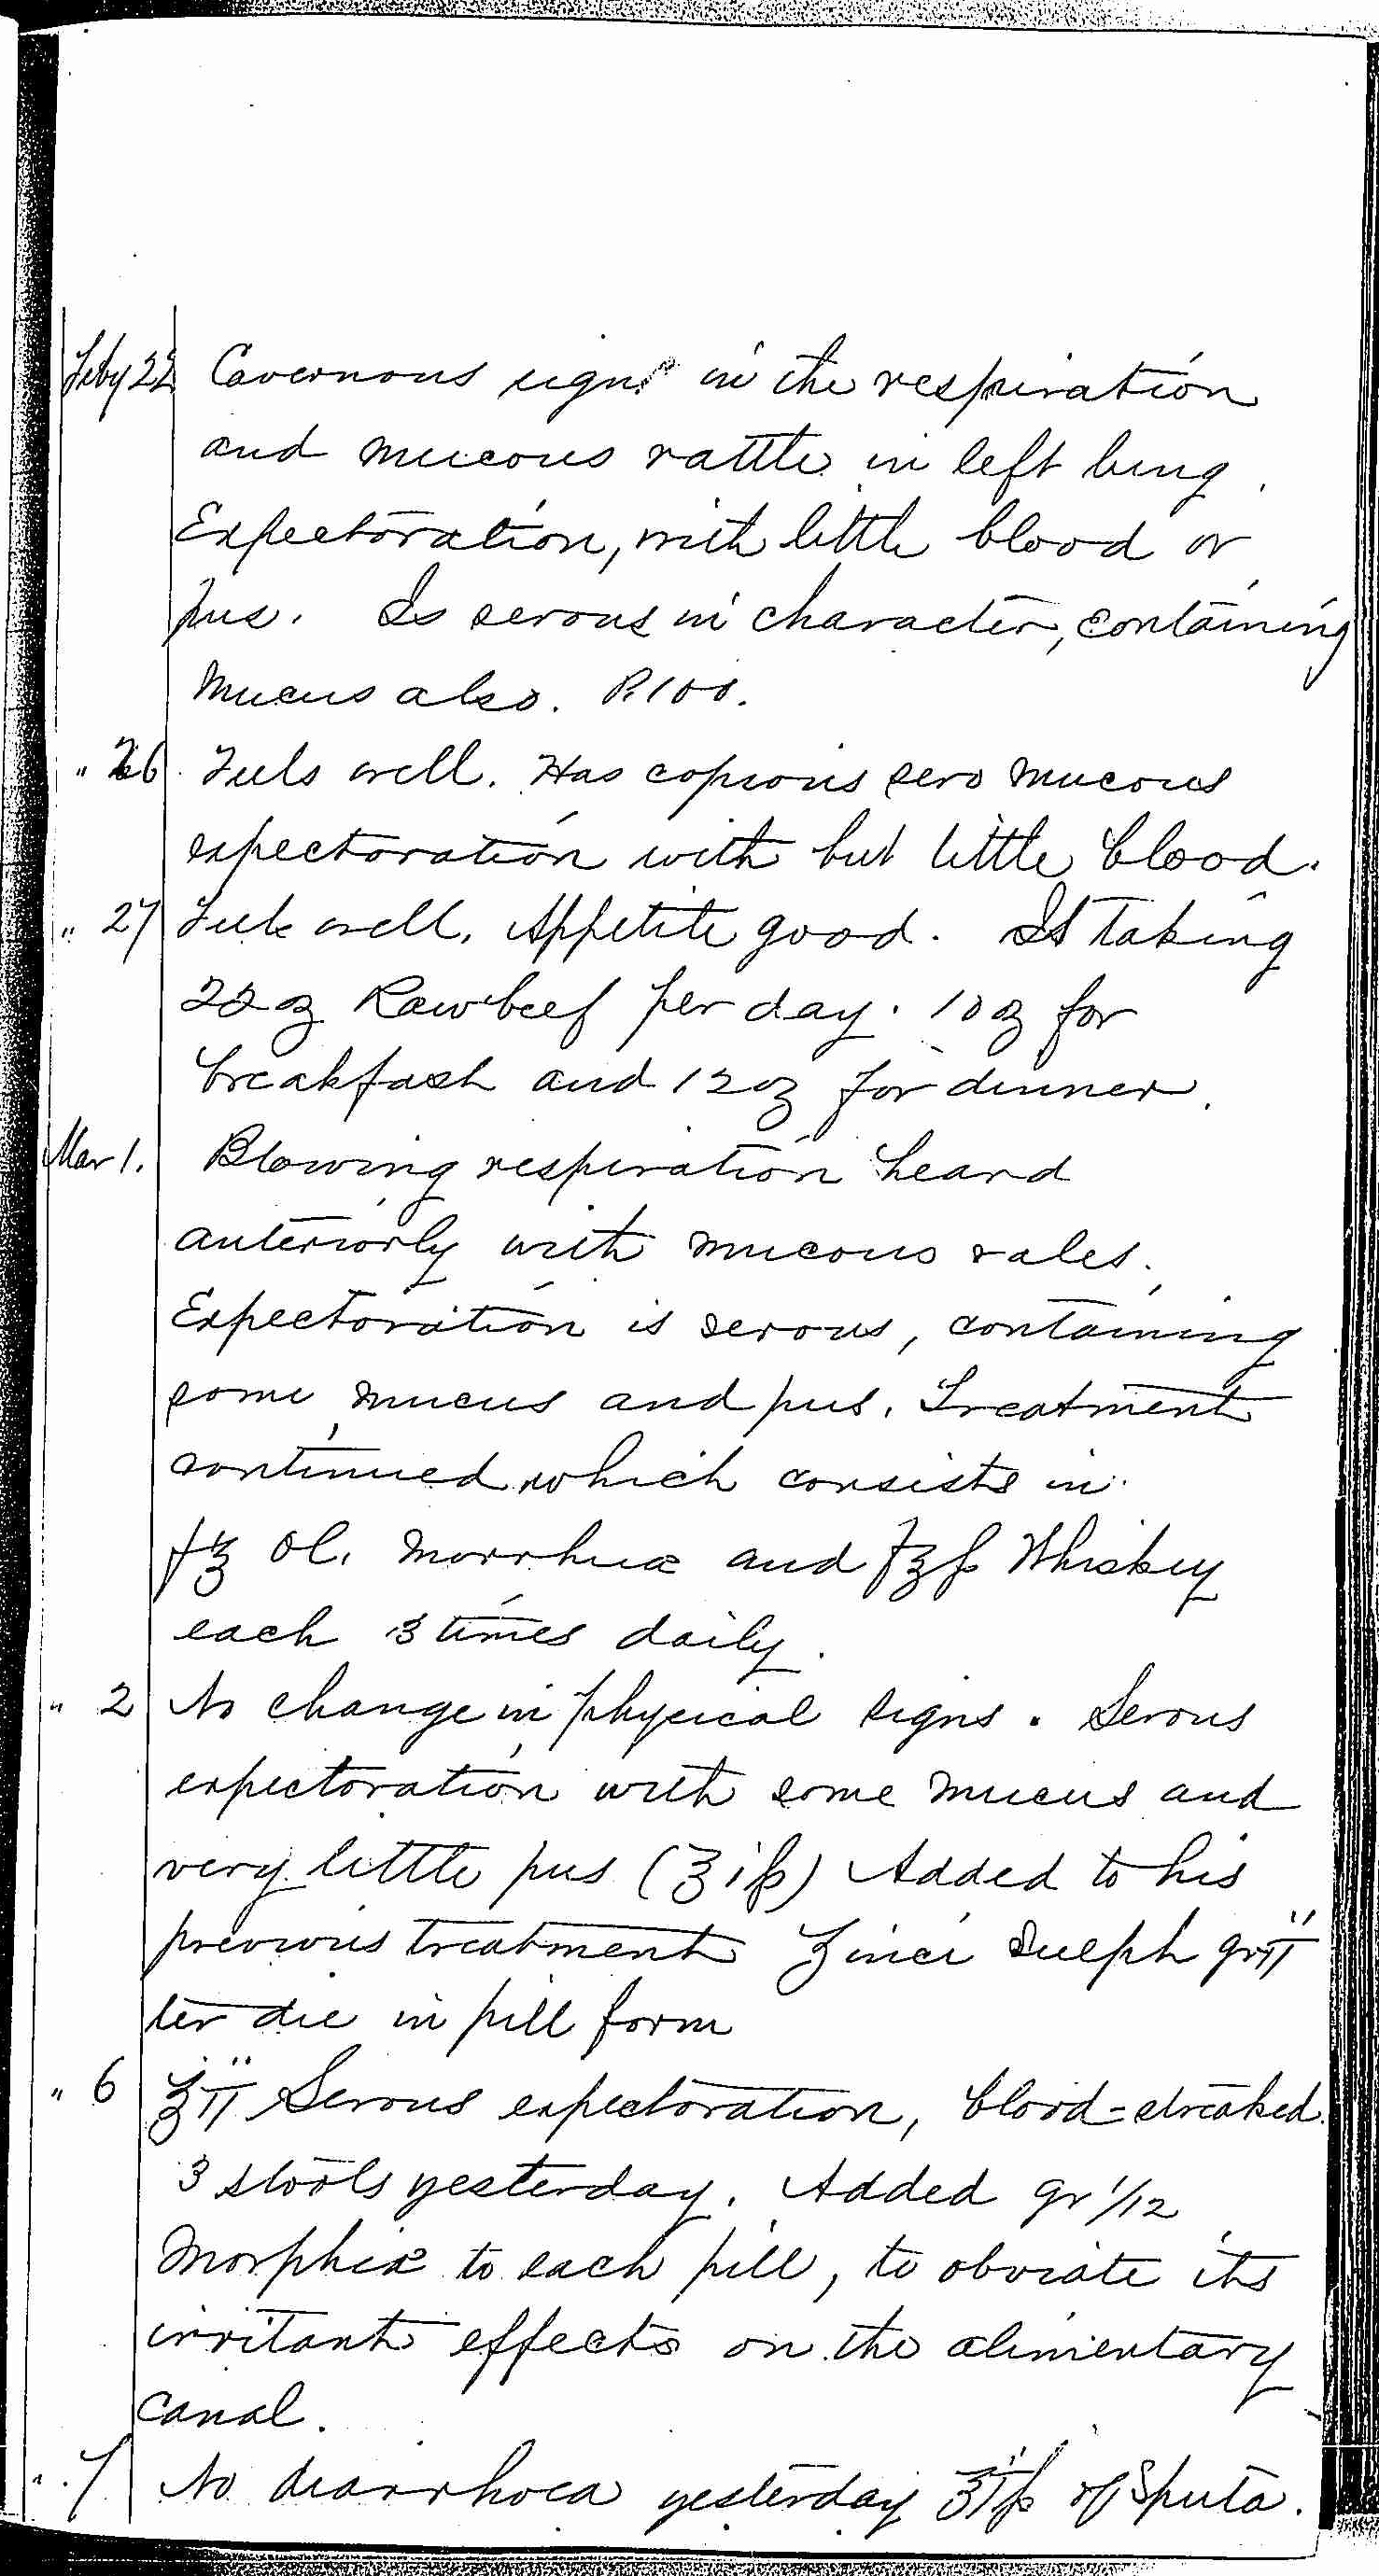 Feby 22 Cavernous signs in the respiration
and mucous rattle in left lung.
Expectoration, with little blood or
pus. Is serous in character, containing
mucus also. P. 100.
" 26 Feels well. Has copious sero mucous
expectoration with but little blood.
" 27 Feels well. Appetite good. Is taking
22 oz Raw beef per day. 10 oz for
breakfast and 12 oz for dinner.
Mar 1. Blowing respiration heard
anteriorly with mucous rales.
Expectoration is serous, containing
some mucus and pus. Treatment
continued which consists in
f℥ Ol. Morrhuæ and f℥ß Whiskey
each 3 times daily.
" 2 No change in physical signs. Serous
expectoration with some mucus and
very little pus (℥iß) Added to his
previous treatment Zinci Sulph gr ii
ter die in pill form
" 6 ℥ii Serous expectoration, blood-streaked.
3 stools yesterday. Added gr 1/12
Morphiæ to each pill, to obviate its
irritant effects on the alimentary
canal.
" 7 No diarrhoea yesterday ℥iiß of Sputa.